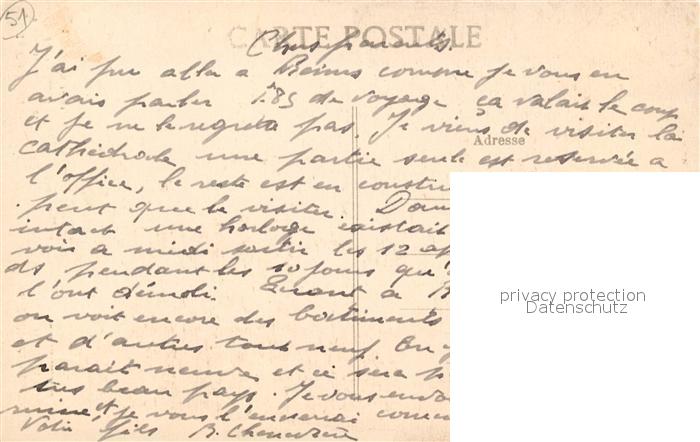 51
CARTE POSTALE
Chers parents.
J'ai pu aller a Reims comme je vous en
avais parler 1.85 de voyage ça valait le coup
et je ne le regrette pas. Je viens de visiter la
Adresse
cathédrale une partie seule est reservée a
l'office, le reste est en constru
peut que le visiter. Dan
intact une horloge existait
vois a midi sortir les 12 ap
ds pendant les 10 jours qu'
l'ont démoli. Quant a R
on voit encore des batiments
et d'autres tout neuf. En
parait neuve et ce sera
très beau pays. Je vous
mine et je vous l'enverrai
Votre fils R. Chenevière
privacy protection
Datenschutz